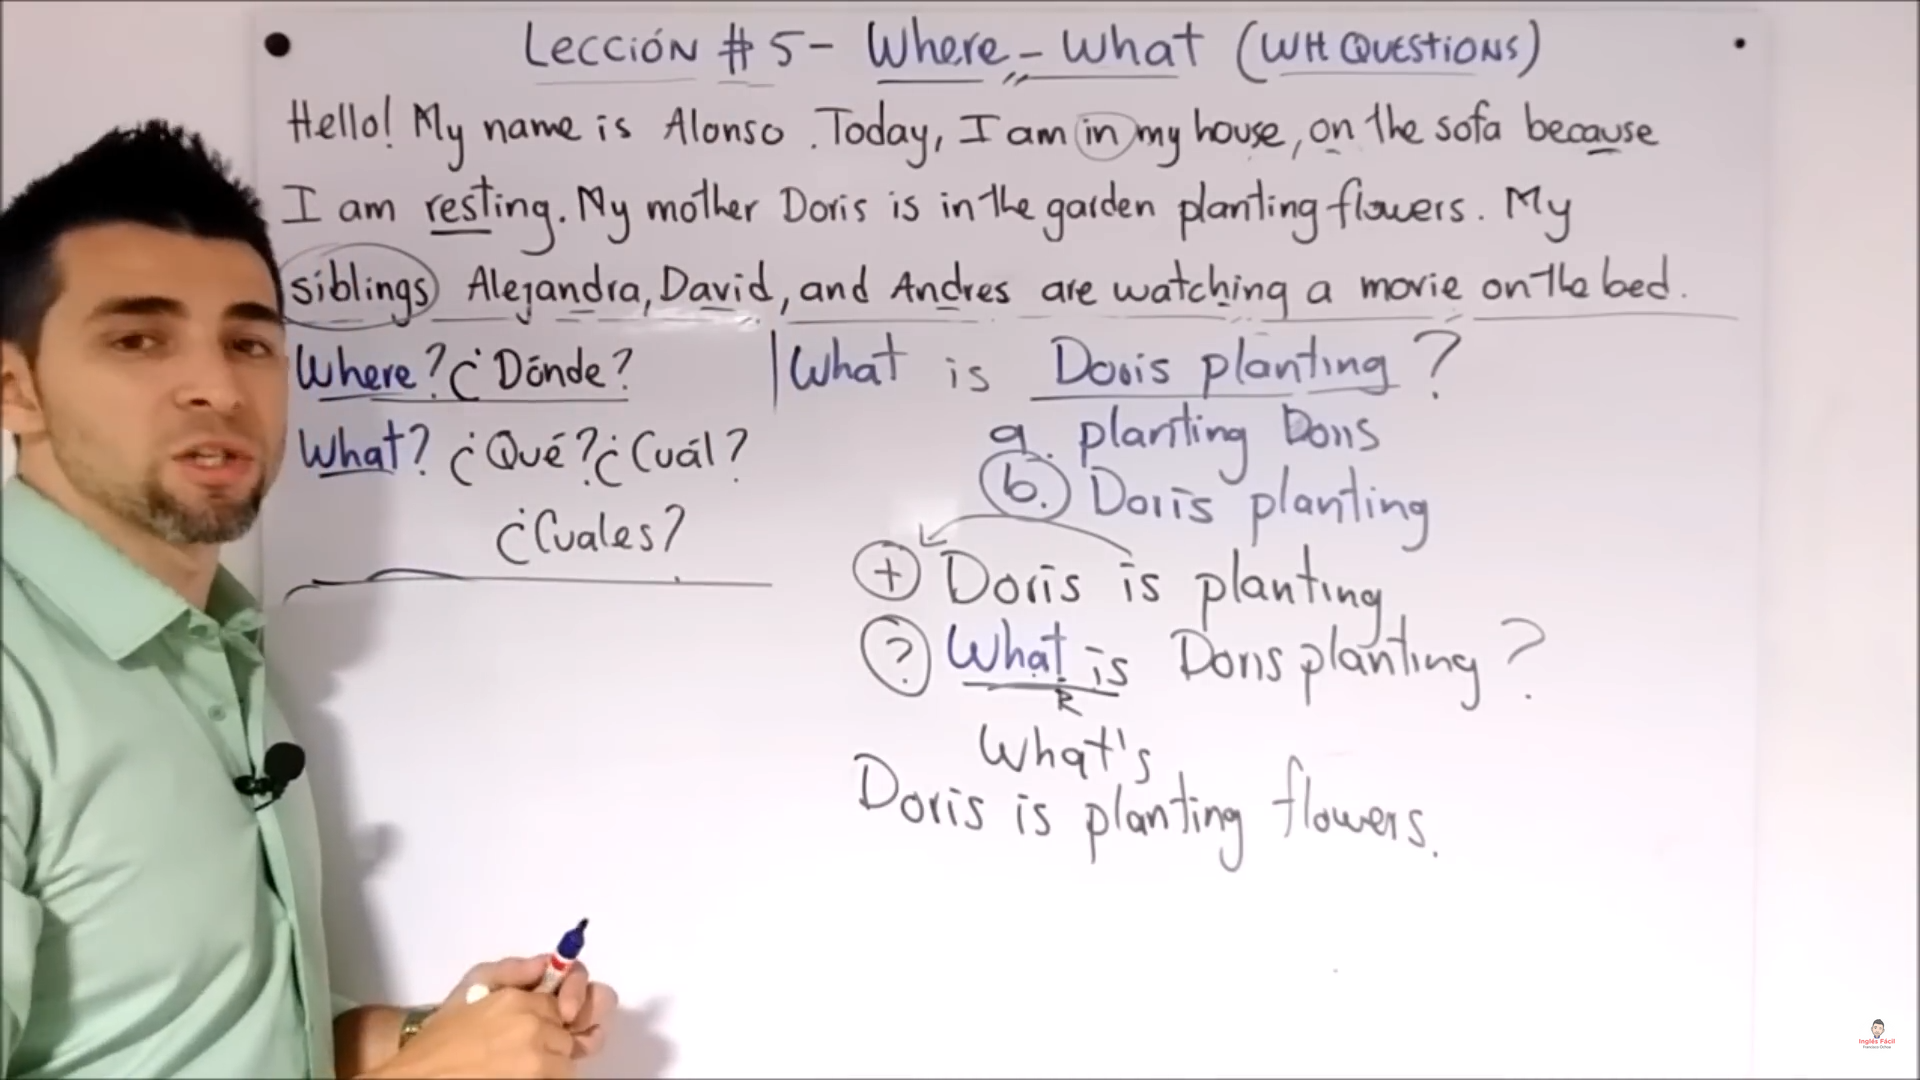 Lección # 5 - Where - What (WH QUESTIONS)
Hello! My name is Alonso. Today, I am in my house, on the sofa because
I am resting. My mother Doris is in the garden planting flowers. My
siblings Alejandra, David, and Andres are watching a movie on the bed.
Where? ¿Dónde?
What? ¿Qué? ¿Cuál?
¿Cuales?
What is Doris planting?
a. planting Doris
b. Doris planting
+ Doris is planting
? What is Doris planting?
What's
Doris is planting flowers.
Inglés Fácil